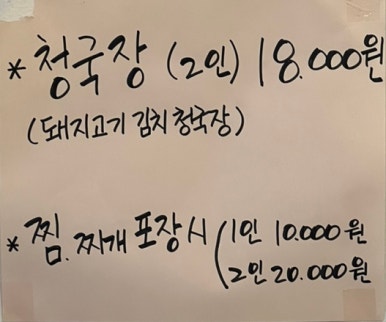 * 청국장 (2인) 18.000원
(돼지고기 김치 청국장)
* 찜. 찌개 포장시 (1인 10.000원
2인 20.000원